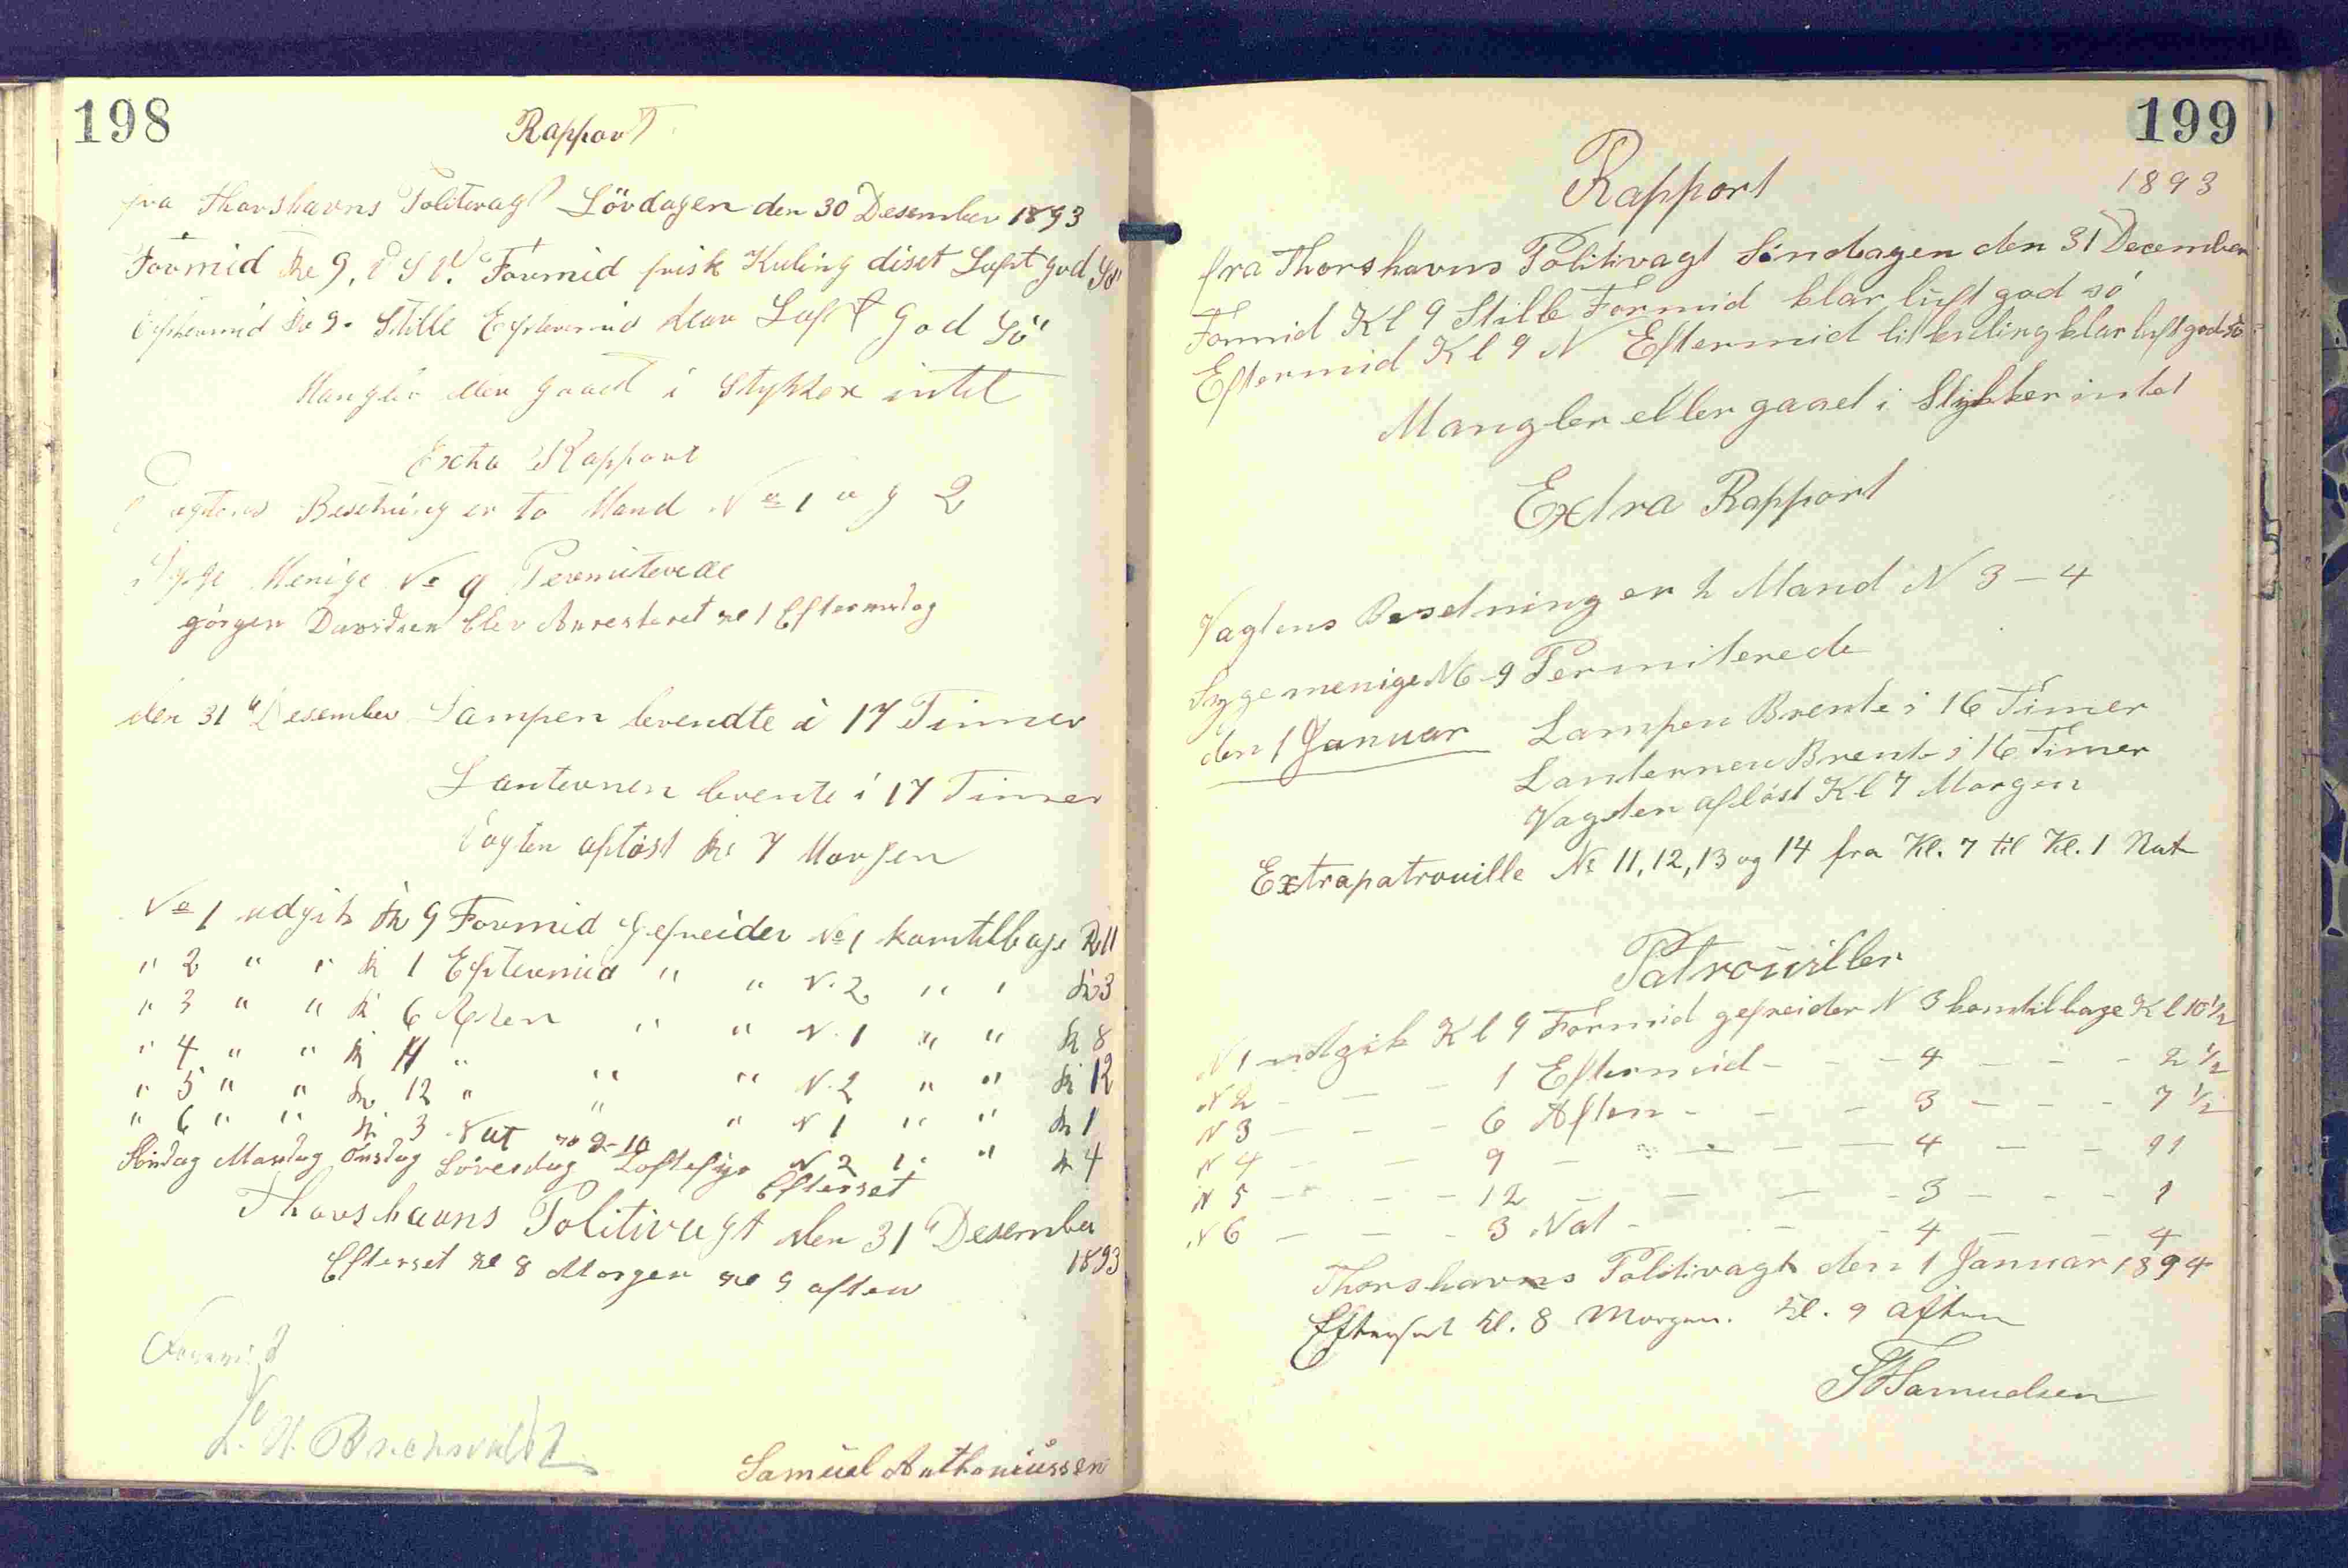 198
Rapport
fra Thorshavns Politivagt Lövdagen den 30 Desember 1893
Formid Kl 9. V S V. Formid frisk Kuling diset Luft god Sö
Eftermid Kl 9. Stille Eftermid klar Luft God Sö
Mangler eller gaaet i Stykker intet
Extra Rapport
Vagtens Besetning er to Mand No 1 og 2
Syge Menige No 9 Permiterede
görgen Davidsen blev Anresteret Kl 1 Eftermidag
den 31 Desember Lampen brendte i 17 Timer
Lanternen brente i 17 Timer
Vagten aflöst Kl 7 Morgen
No 1 udgik Kl 9 Formid Gefreider No 1 kom tilbage Kl 11
" 2 " " Kl 1 Eftermid " " N. 2 " " Kl 3
" 3 " " Kl 6 Aften " " N. 1 " " Kl 8
" 4 " " Kl " " " N. 2 " " Kl
" 5 " " Kl 12 " " " N 1 " " Kl 1
" 6 " " Kl 3 Nat N 2 " " Kl 4
Söndag Mandag Onsdag Löverdag Efterset
Thorshavns Politivagt den 31 Desember
1893
Efterset Kl 8 Morgen Kl 9 aften
Samuel Anthoniussen
199
Rapport
1893
fra Thorshavns Politivagt Söndagen den 31 December
Formid Kl 9 Stille Formid klar luft god sö
Eftermid Kl 9 N Eftermid lit kuling klar luft god sö
Mangler eller gaaet i Stykker intet
Extra Rapport
Vagtens Besetning er 2 Mand N 3 – 4
Syge menige No 9 Permiterede
den 1 Januar Lampen Brente i 16 Timer
Lanternen Brente i 16 Timer
Vagten aflöst Kl 7 Morgen
Extrapatrouille No 11, 12, 13 og 14 fra Kl. 7 til Kl. 1 Nat
Patrouiller
N 1 udgik Kl 9 Formid gefreider N 3 kom tilbage Kl 10 1/2
N 2 – – – 1 Eftermid – – – 4 – – – 2 1/2
N 3 – – – 6 Aften – – – 3 – – – 7 1/2
N 4 – – 9 – – – – 4 – – 11
N 5 – – – 12 – – – – 3 – – – 1
N 6 – – – 3 Nat – – – 4 – – 4
Thorshavns Politivagt den 1 Januar 1894
Efterset Kl. 8 Morgen. Kl. 9 aften
Samuelsen